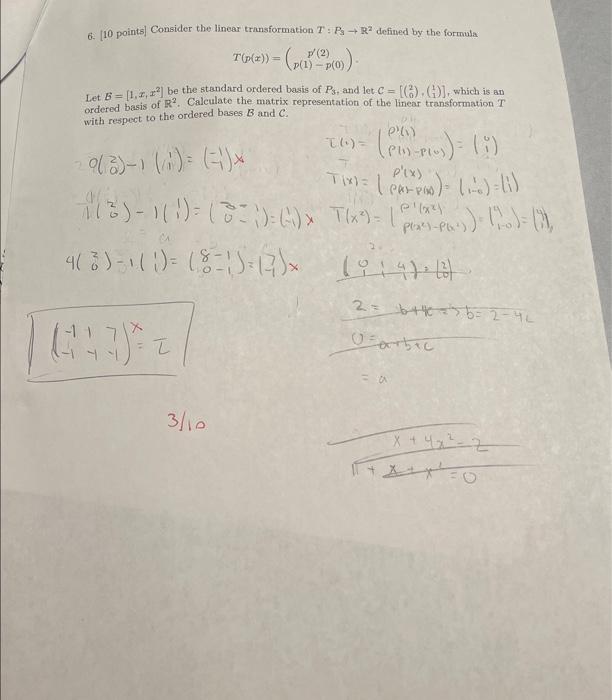 6. [10 points] Consider the linear transformation T : P₃ → R² defined by the formula
T(p(x)) = ( p′(2) ; p(1) − p(0) ).
Let B = [1, x, x²] be the standard ordered basis of P₃, and let C = [(2 0), (1 1)], which is an
ordered basis of R². Calculate the matrix representation of the linear transformation T
with respect to the ordered bases B and C.
T(1) = (p'(1) ; p(1)-p(0)) = (0 ; 1)
0(2 ; 0) - 1(1 ; 1) = (-1 ; -1) x
T(x) = (p'(x) ; ) = (1 ; 1-0) = (1 ; 1)
1(2 ; 0) - 1(1 ; 1) = (2-1 ; 0-1) = (1 ; -1) x
T(x²) = (p'(x²) ; ) = (4 ; 1-0) = (4 ; 1)
4(2 ; 0) - 1(1 ; 1) = (8-1 ; 0-1) = (7 ; -1) x
(0 1 4 ; 1) = (2 ; 0)
2 = b+4c => b = 2-4c
0 = a+b+c
= a
(-1 1 7 ; -1 -1 -1) x = T
3/10
x + 4x² = 2
1 + x + x² = 0